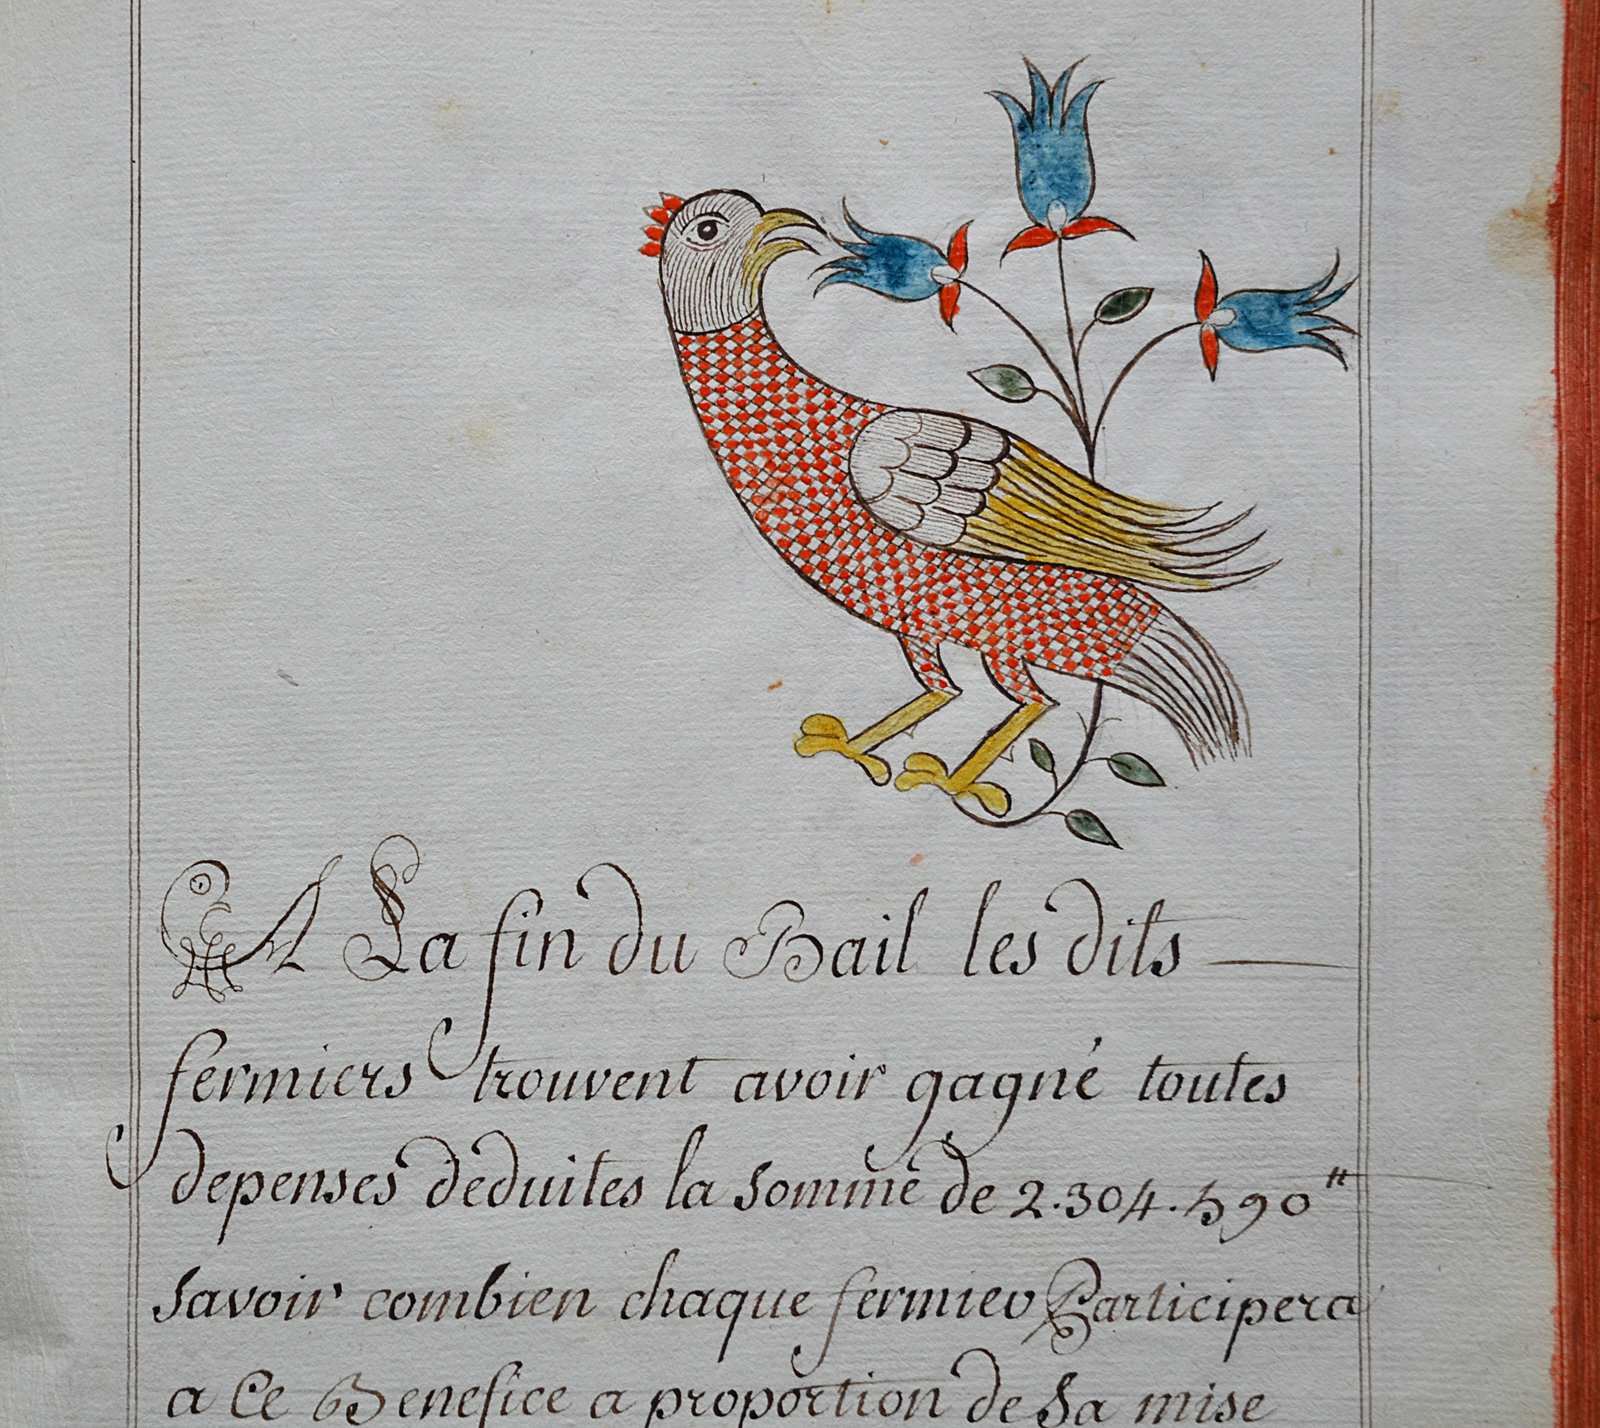 A La fin du Bail les dits
fermiers trouvent avoir gagné toutes
depenses deduites la somme de 2.304.590"
savoir combien chaque fermier Participera
a Ce Benefice a proportion de sa mise